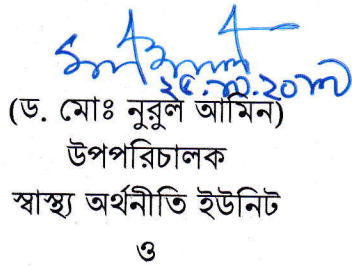 (ড. মোঃ নুরুল আমিন)
উপপরিচালক
স্বাস্থ্য অর্থনীতি ইউনিট
ও